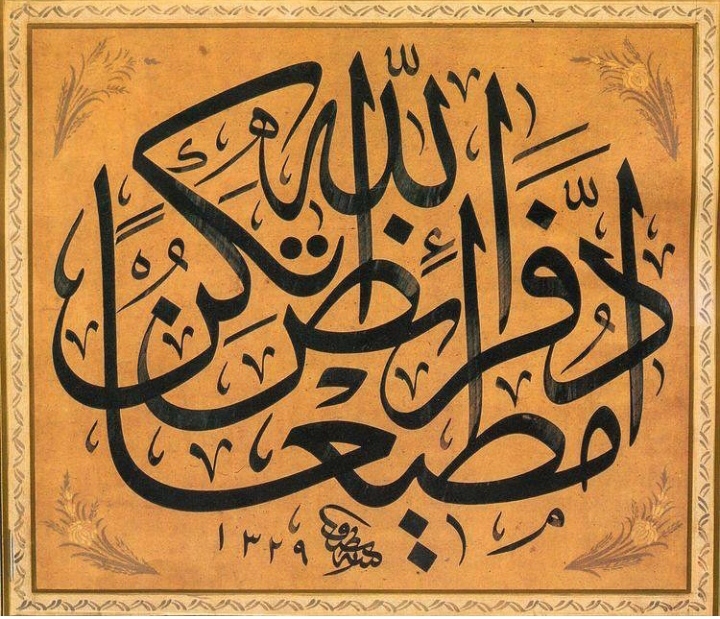 ادّ فرائض الله تكن مطيعا
١٣٢٩